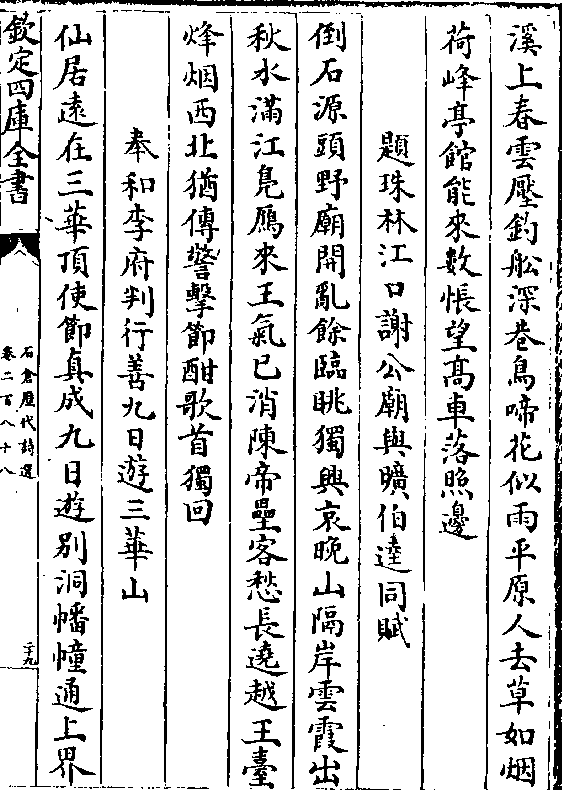 溪上春雲壓釣舩深巷鳥啼花似雨平原人去草如烟
荷峰亭館能來數悵望高車落照邊
題珠林江口謝公廟與曠伯逹同賦
倒石源頭野廟開亂餘臨眺獨興哀晚山隔岸雲霞出
秋水滿江鳬鴈來王氣已消陳帝壘客愁長遶越王臺
烽烟西北猶傳警擊節酣歌首獨回
奉和李府判行善九日遊三華山
仙居遠在三華頂使節真成九日遊別洞幡幢通上界
欽定四庫全書
石倉歷代詩選
卷二百八十八
二十九